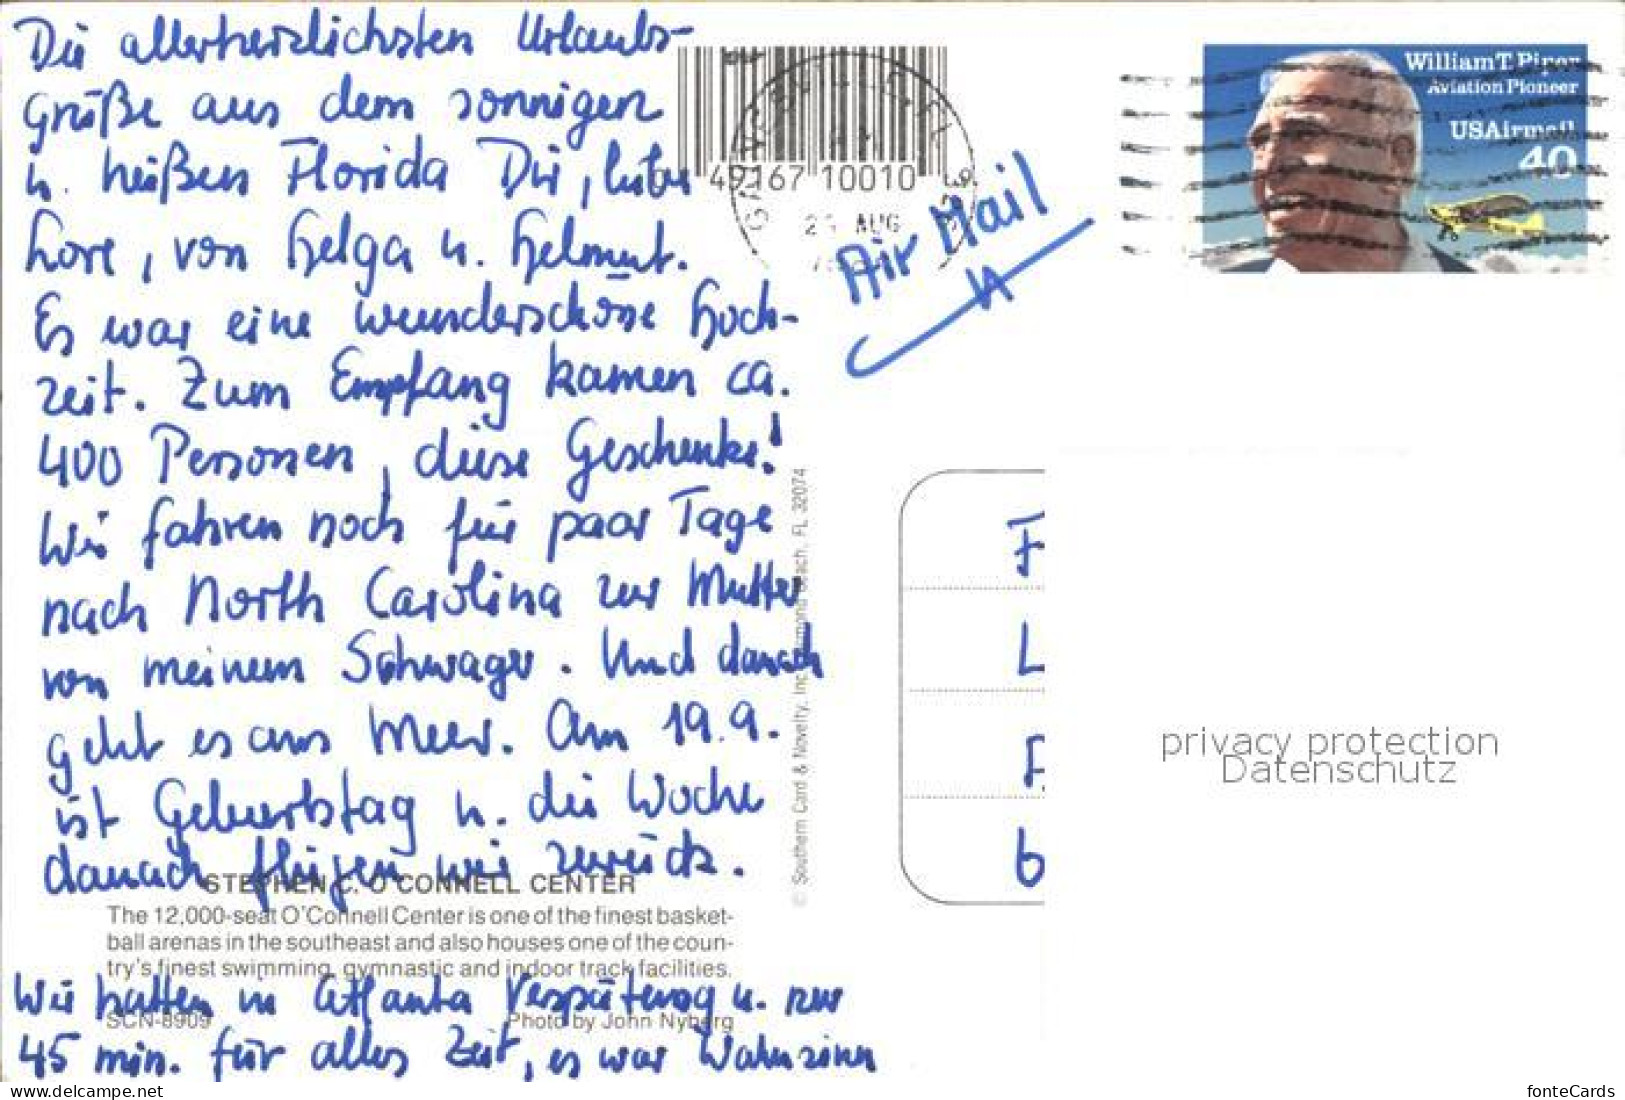 Die allerherzlichsten Urlaubs-
grüße aus dem sonnigen
u. heißen Florida Dir, liebe
Lore, von Helga u. Helmut.
Es war eine wunderschöne Hoch-
zeit. Zum Empfang kamen ca.
400 Personen, diese Geschenke!
Wir fahren noch für paar Tage
nach North Carolina zur Mutter
von meinem Schwager. Und danach
geht es ans Meer. Am 19.9.
ist Geburtstag u. die Woche
danach fliegen wir zurück.
STEPHEN C. O'CONNELL CENTER
The 12,000-seat O'Connell Center is one of the finest basket-
ball arenas in the southeast and also houses one of the coun-
try's finest swimming, gymnastic and indoor track facilities.
SCN-8909
Photo by John Nyberg
Wir hatten in Atlanta Verspätung u. nur
45 min. für alles Zeit, es war Wahnsinn
© Southern Card & Novelty, Inc. Ormond Beach, FL 32074
49167 10010
GAINESVILLE, FL
AUG
Air Mail
William T. Piper
Aviation Pioneer
USAirmail
40
F
L
6
privacy protection
Datenschutz
www.ansichtskarten-center.de
fonteCards